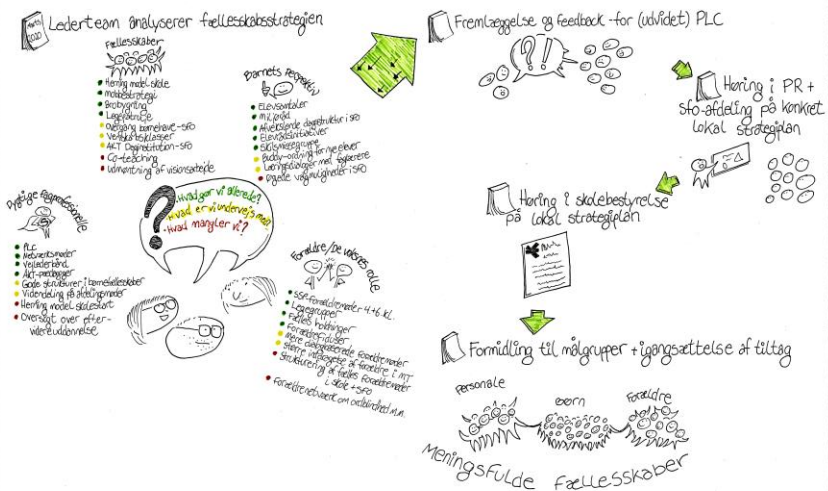 Marts 2020
Lederteam analyserer fællesskabsstrategien
Fællesskaber
Herning model skole
mobbestrategi
Brobygning
Legepatrulje
overgang børnehave-SFO
Venskabsklasser
AKT Daginstitution-SFO
Co-teaching
udmøntning af visionsarbejde
Barnets perspektiv
Elevsamtaler
miljøråd
Afvekslende dagsstruktur i SFO
Elevrådsinitiativer
Skilsmissegruppe
Buddy-ordning for nye elever
Læringsdialoger med faglærere
valgmuligheder i SFO
Dygtige fagprofessionelle
PLC
Netværksmøder
Vejlederbånd
AKT-pædagoger
Gode strukturer i børnefællesskaber
Videndeling på afdelingsmøder
Herning model skolestart
Oversigt over efter-
videreuddannelse
-Hvad gør vi allerede?
-Hvad er vi undervejs med?
-Hvad mangler vi?
Forældre/De voksnes rolle
SSP forældremøder 4.+6. kl.
Legegrupper
Fælles holdninger
Forældrefiduser
mere dialogbaserede forældremøder
større inddragelse af forældre i MT
Strukturering af fælles forældremøder
i skole + SFO
Forældrenetværk om ordblindhed m.m.
Fremlæggelse og feedback - for (udvidet) PLC
?!
Høring i PR +
sfo-afdeling på konkret
lokal strategiplan
Høring i skolebestyrelse
på lokal strategiplan
Formidling til målgrupper + igangsættelse af tiltag
Personale
Børn
Forældre
Meningsfulde Fællesskaber